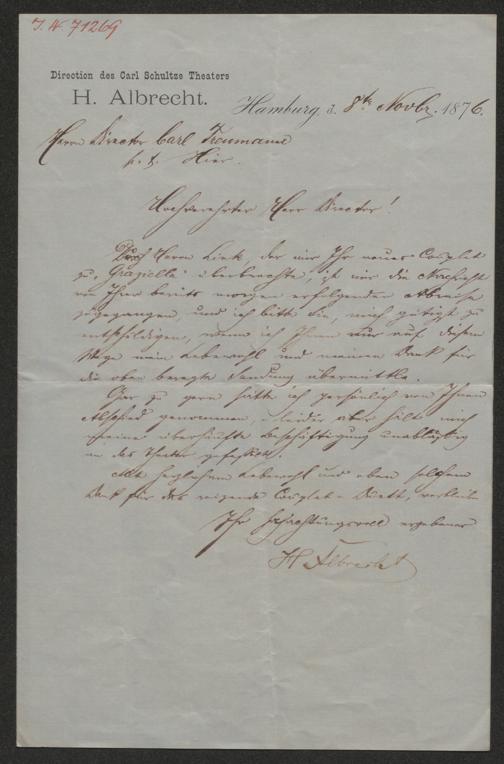 I. N. 71269
Direction des Carl Schultze Theaters
H. Albrecht.
Hamburg, d. 8ten Novbr. 1876.
Herrn Director Carl Treumann
p. t. Hier.
Hochverehrter Herr Director!
Durch Herrn Link, der mir Ihr neues Couplet
zu "Graziella" überbrachte, ist mir die Nachricht
von Ihrer bereits morgen erfolgenden Abreise
zugegangen, und ich bitte Sie, mich gütigst zu
entschuldigen, wenn ich Ihnen nur auf diesem
Wege mein Lebewohl und meinen Dank für
die oben beregte Sendung übermittle.
Gar zu gern hätte ich persönlich von Ihnen
Abschied genommen, leider aber hält mich
meine überhäufte Beschäftigung unablässig
an das Theater gefesselt.
Mit herzlichem Lebewohl und eben solchem
Dank für das reizende Couplet-Duett, verbleibe
Ihr hochachtungsvoll ergebener
H Albrecht